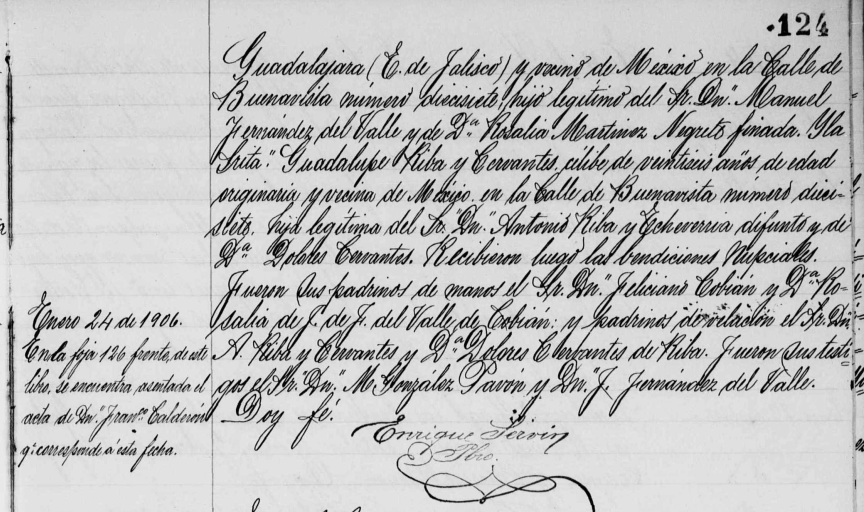 124
Guadalajara (E. de Jalisco) y vecino de México en la Calle de
Buenavista número diecisiete, hijo legítimo del Sr. Dn. Manuel
Fernández del Valle y de Dª Rosalia Martinez Negrete finada. Y la
Srita. Guadalupe Riba y Cervantes, célibe, de veintiseis años de edad
originaria y vecina de México, en la Calle de Buenavista número dieci-
siete, hija legítima del Sr. Dn. Antonio Riba y Echeverria difunto y de
Dª Dolores Cervantes. Recibieron luego las bendiciones Nupciales.
Fueron sus padrinos de manos el Sr. Dn. Feliciano Cobián y Dª Ro-
salia de J. de F. del Valle de Cobián: y padrinos de velación el Sr. Dn.
A. Riba y Cervantes y Dª Dolores Cervantes de Riba. Fueron sus testi-
gos el Sr. Dn. M. González Pavón y Dn. J. Fernández del Valle.
Doy fé.
Enrique Servin
Pbro.
Enero 24 de 1906.
En la foja 126 frente, de este
libro, se encuentra asentada el
acta de Dn. Franco Calderón
q. corresponde á esta fecha.